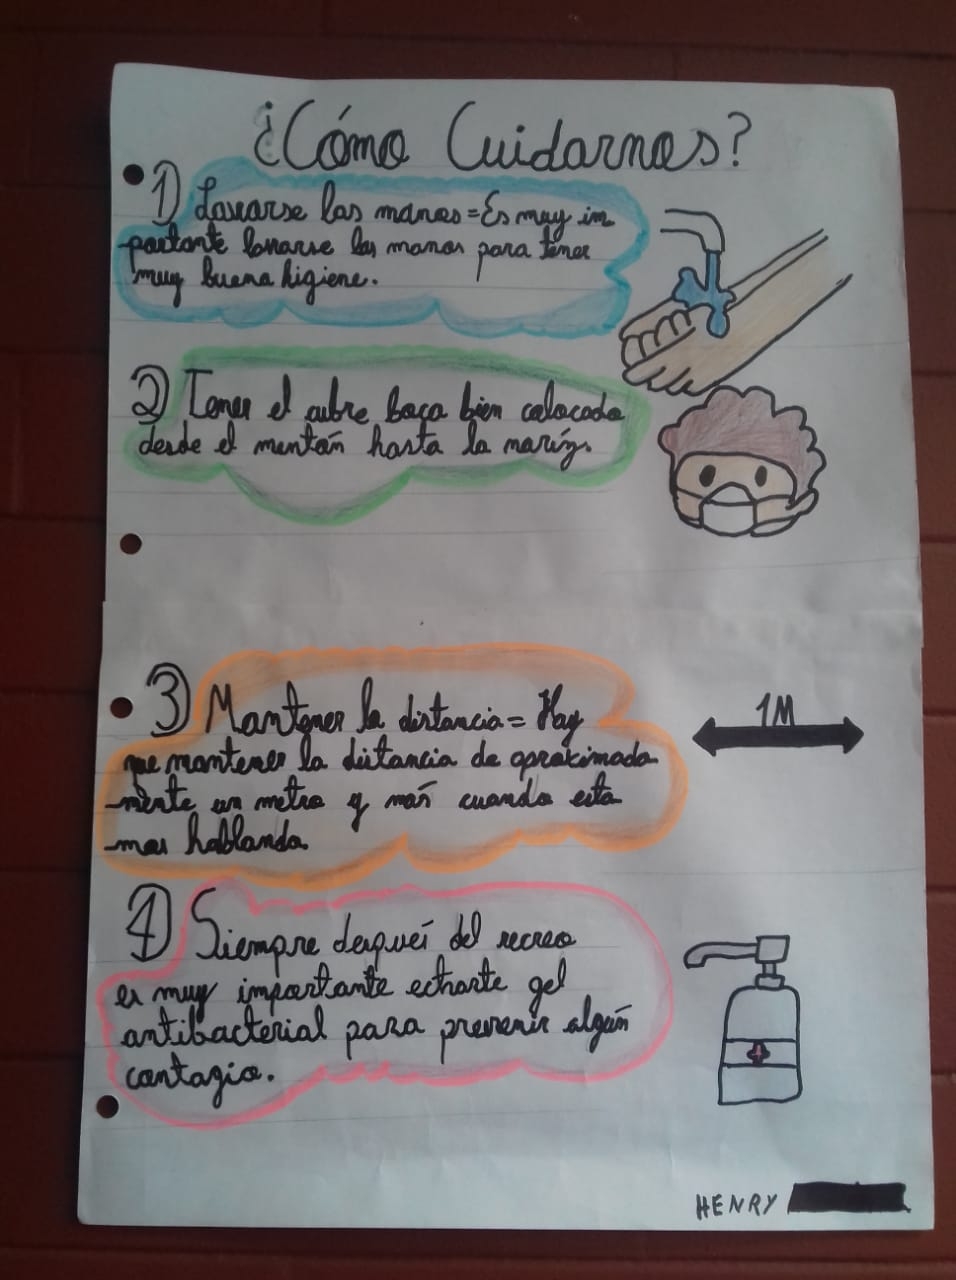 ¿Cómo Cuidarnos?
1) Lavarse las manos = Es muy im
portante lavarse las manos para tener
muy buena higiene.
2) Tener el cubre boca bien colocado
desde el mentón hasta la naríz.
3) Mantener la distancia = Hay
que mantener la distancia de aproximada
mente un metro y más cuando esta
mos hablando.
1M
4) Siempre despueś del recreo
es muy importante echarte gel
antibacterial para prevenir algún
contagio.
HENRY